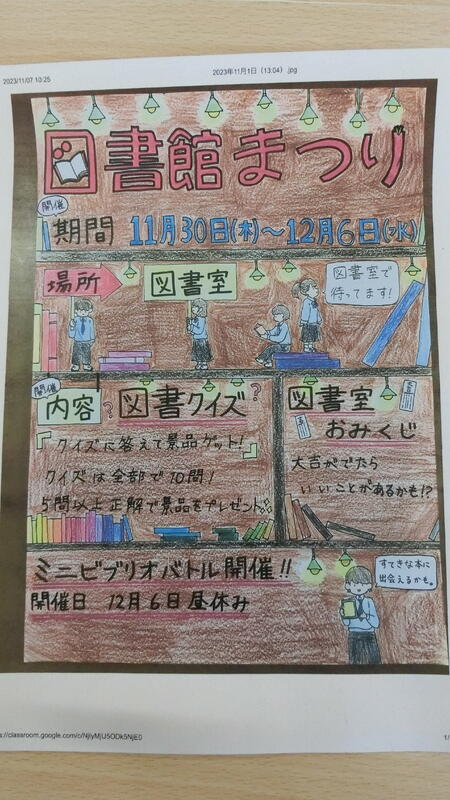 2023/11/07 10:25
2023年11月1日 (13:04) .jpg
図書館まつり
開催
期間 11月30日(木)～12月6日(水)
場所 図書室
図書室で
待ってます!
開催
内容 ? 図書クイズ ?
『クイズに答えて景品ゲット!』
クイズは全部で10問!
5問以上正解で景品をプレゼント
図書室
おみくじ
大吉がでたら
いいことがあるかも!?
ミニビブリオバトル開催!!
開催日 12月6日昼休み
すてきな本に
出会えるかも。
s://classroom.google.com/c/NjIyMjU5ODk5NjE0
1/